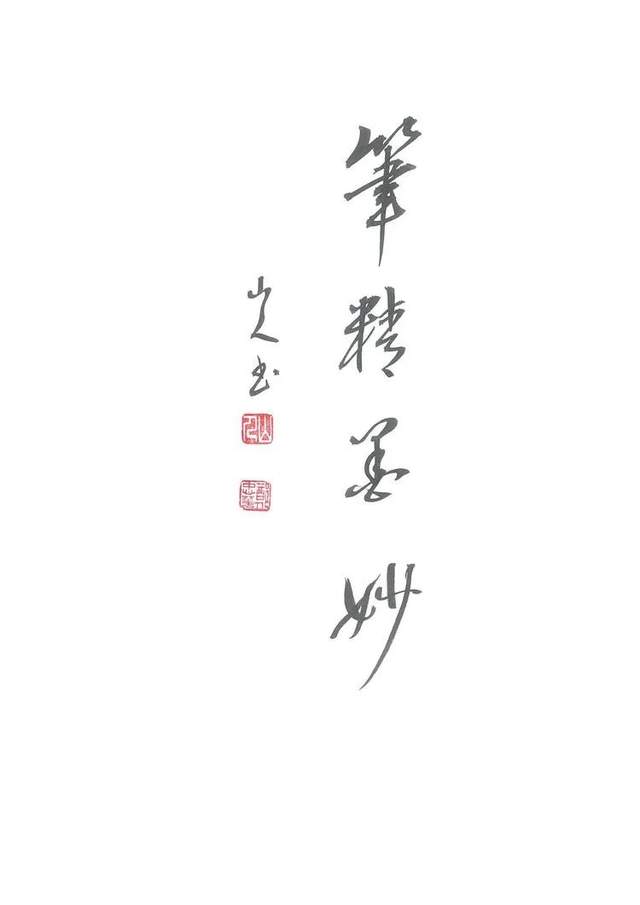 筆精墨妙
山人书